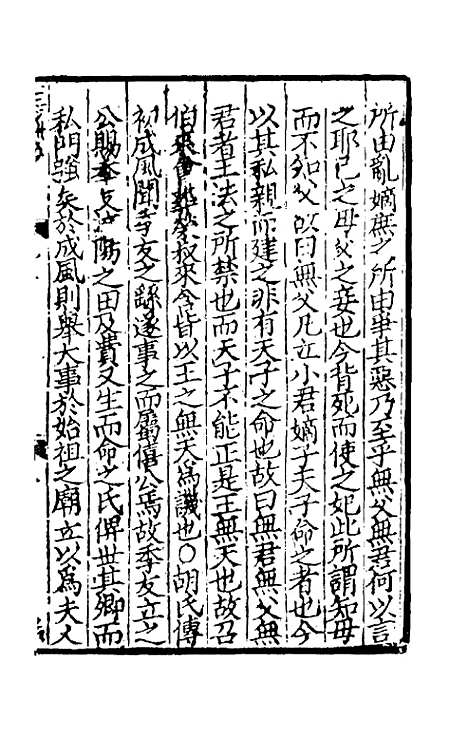 所由亂嫡庶之所由爭其惡乃至乎無父無君何以言
之耶己之母父之妾也今背死而使之妃此所謂知母
而不知父故曰無父凡立小君嫡子天子命之者也今
以其私親而建之非有天子之命也故曰無君無父無
君者王法之所禁也而天子不能正是王無天也故召
伯來會葬榮叔來含皆以王之無天為譏也〇胡氏傳
初成風聞季友之繇遂事之而屬僖公焉故季友立之
公賜季友汶陽之田及費又生而命之氏俾世其卿而
私門強矣於成風則舉大事於始祖之廟立以為夫人